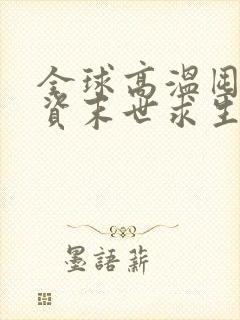 全球高溫囤
資末世求生
墨語薪